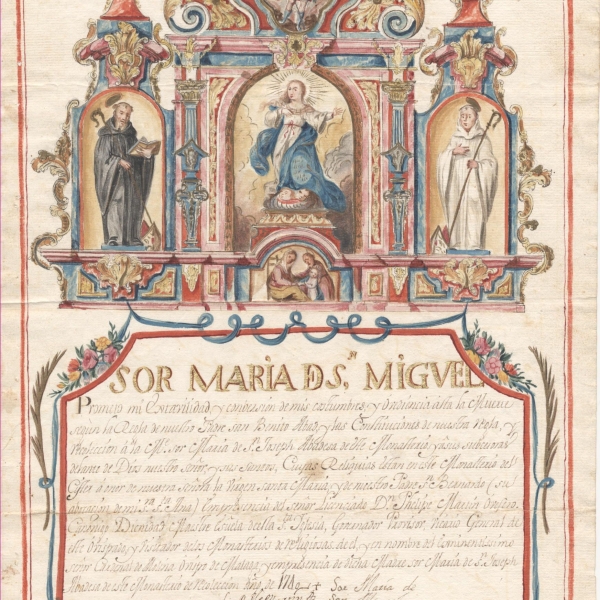 SOR MARIA D S.ⁿ MIGVEL
Prometo mi Estavilidad, y conversion de mis costumbres, y obediencia asta la Muerte
segun la Regla de nuestro Padre san Benito Abad, y las Constituciones de nuestra
Proteccion à la M.ᵉ sor Maria de S.ⁿ Joseph Abadesa de este Monasterio, y a sus subcesoras
delante de Dios nuestro señor, y sus santos, Cuyas Reliquias estan en este Monasterio del
Cister â onor de nuestra señora la Virgen santa Maria, y de nuestro Padre S.ⁿ Bernardo (su
abocacion de mi S.ᵃ S.ᵗᵃ Ana) En presencia del señor Licenciado D.ⁿ Phelipe Martin
Dignidad Maestre Escuela de esta S.ᵗᵃ Iglesia, Governador Provisor Vicario General de
este Obispado, y Visitador de los Monasterios de religiosas de el, y en nombre del Eminentissimo
señor Cardenal de Molina Obispo de Malaga, y en presencia de dicha Madre sor Maria de S.ⁿ Joseph
Abadesa de este Monasterio de Recoleccion año de Sor Maria de